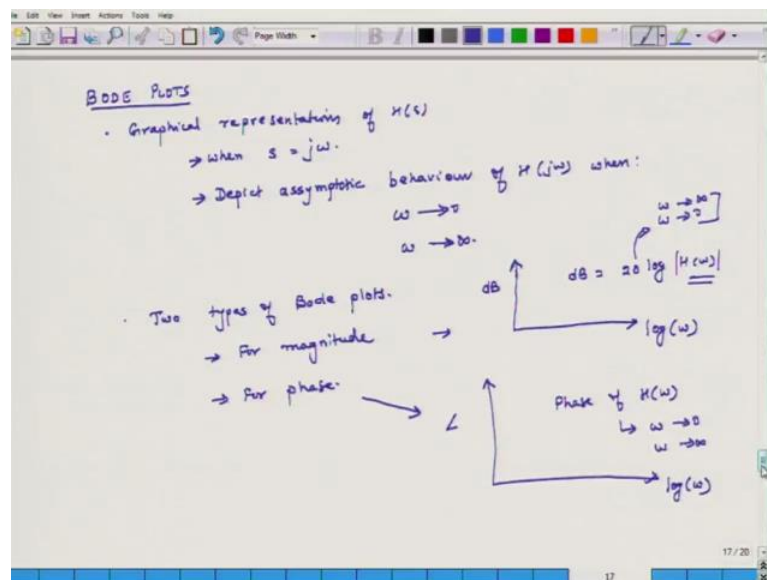 File Edit View Insert Actions Tools Help
Page Width
B I
BODE PLOTS
• Graphical representations of H(s)
→ when s = jω.
→ Depict assymptotic behaviour of H(jω) when:
ω → 0
ω → ∞.
ω → ∞
ω → 0
dB = 20 log |H(ω)|
dB
log(ω)
• Two types of Bode plots.
→ For magnitude →
→ For phase.
∠
Phase of H(ω)
↳ ω → 0
ω → ∞
log(ω)
17 / 20
17